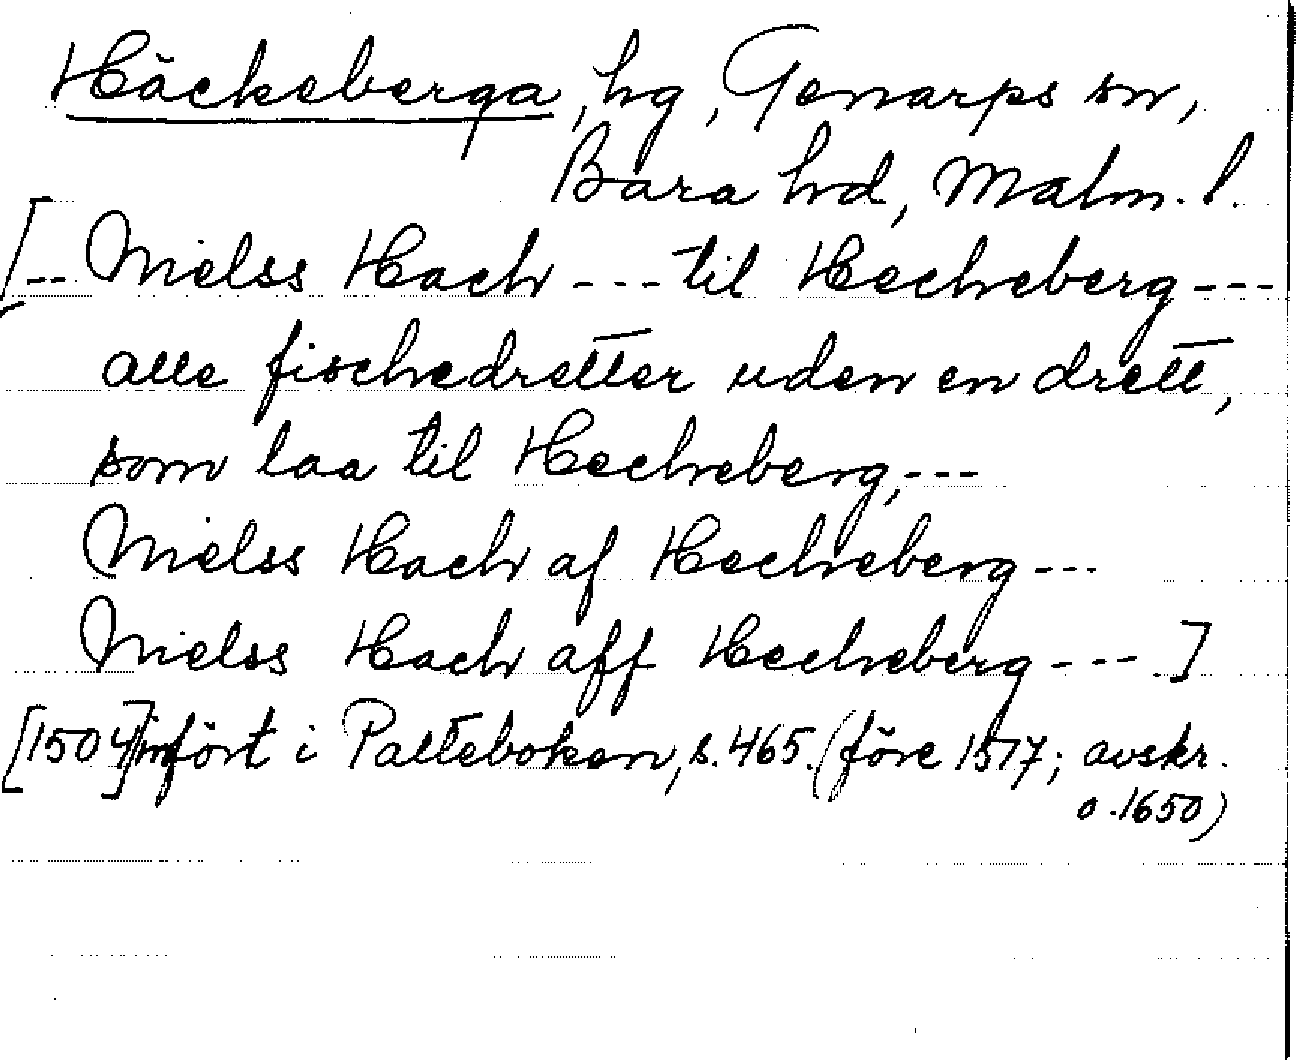 Häckeberga, hg, Genarps sn,
Bara hd, Malm. l.
[-- Nielss Hach --- til Hecheberg ---
alle fischedretter uden en drett,
som laa til Hecheberg, ---
Nielss Hach af Hecheberg ---
Nielss Hach aff Hecheberg --- ]
[1504] infört i Palteboken, s. 465. (före 1517; avskr.
o. 1650)